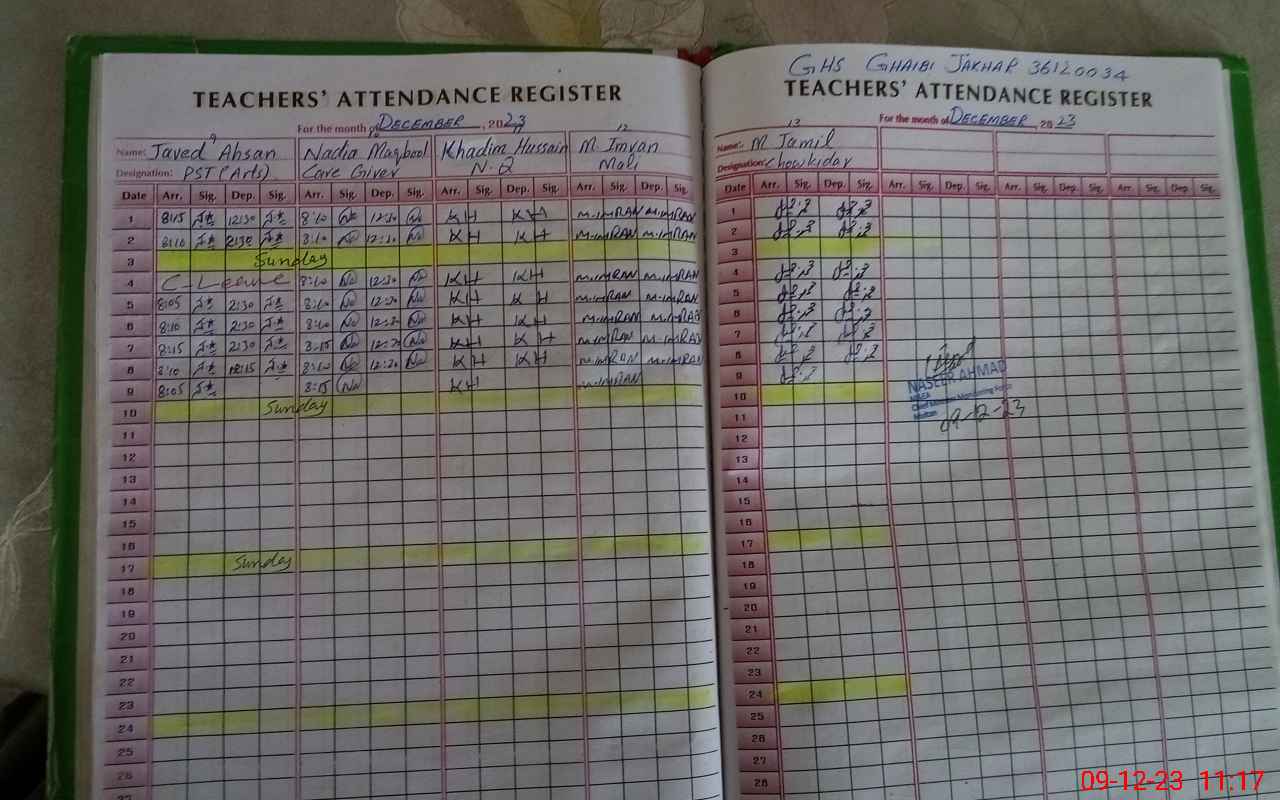 TEACHERS' ATTENDANCE REGISTER
For the month of DECEMBER, 2023
9 12
Name: Javed Ahsan Nadia Maqbool Khadim Hussain M Imran
Designation: PST (Arts) Care Giver N.Q Mali
Date Arr. Sig. Dep. Sig. Arr. Sig. Dep. Sig. Arr. Sig. Dep. Sig. Arr. Sig. Dep. Sig.
1 8:15 12:30 8:10 12:30 KH KH M.imRAN M.imRAN
2 8:10 2:30 8:10 12:30 KH KH M.imRAN M.imRAN
3 Sunday
4 C-Leave 8:10 12:30 KH KH M.imRAN M.imRAN
5 8:05 2:30 8:10 12:30 KH KH M.imRAN M.imRAN
6 8:10 2:30 8:10 12:30 KH KH M.imRAN M.imRAN
7 8:15 2:30 8:15 12:30 KH KH M.imRAN M.imRAN
8 8:10 12:15 8:10 12:30 KH KH M.imRAN M.imRAN
9 8:05 8:15 KH M.imRAN
10 Sunday
11
12
13
14
15
16
17 Sunday
18
19
20
21
22
23
24
25
26
27
GHS GHAIBI JAKHAR 36120034
TEACHERS' ATTENDANCE REGISTER
For the month of DECEMBER 2023
13
Name: M Jamil
Designation: Chowkidar
Date Arr. Sig. Dep. Sig. Arr. Sig. Dep. Sig. Arr. Sig. Dep. Sig. Arr. Sig. Dep. Sig.
1
2
3
4
5
6
7
8
9
NASEER AHMAD
10
MEA
Chief Minister Monitoring Force
11
Multan
09-12-23
12
13
14
15
16
17
18
19
20
21
22
23
24
25
26
27
28
09-12-23 11:17